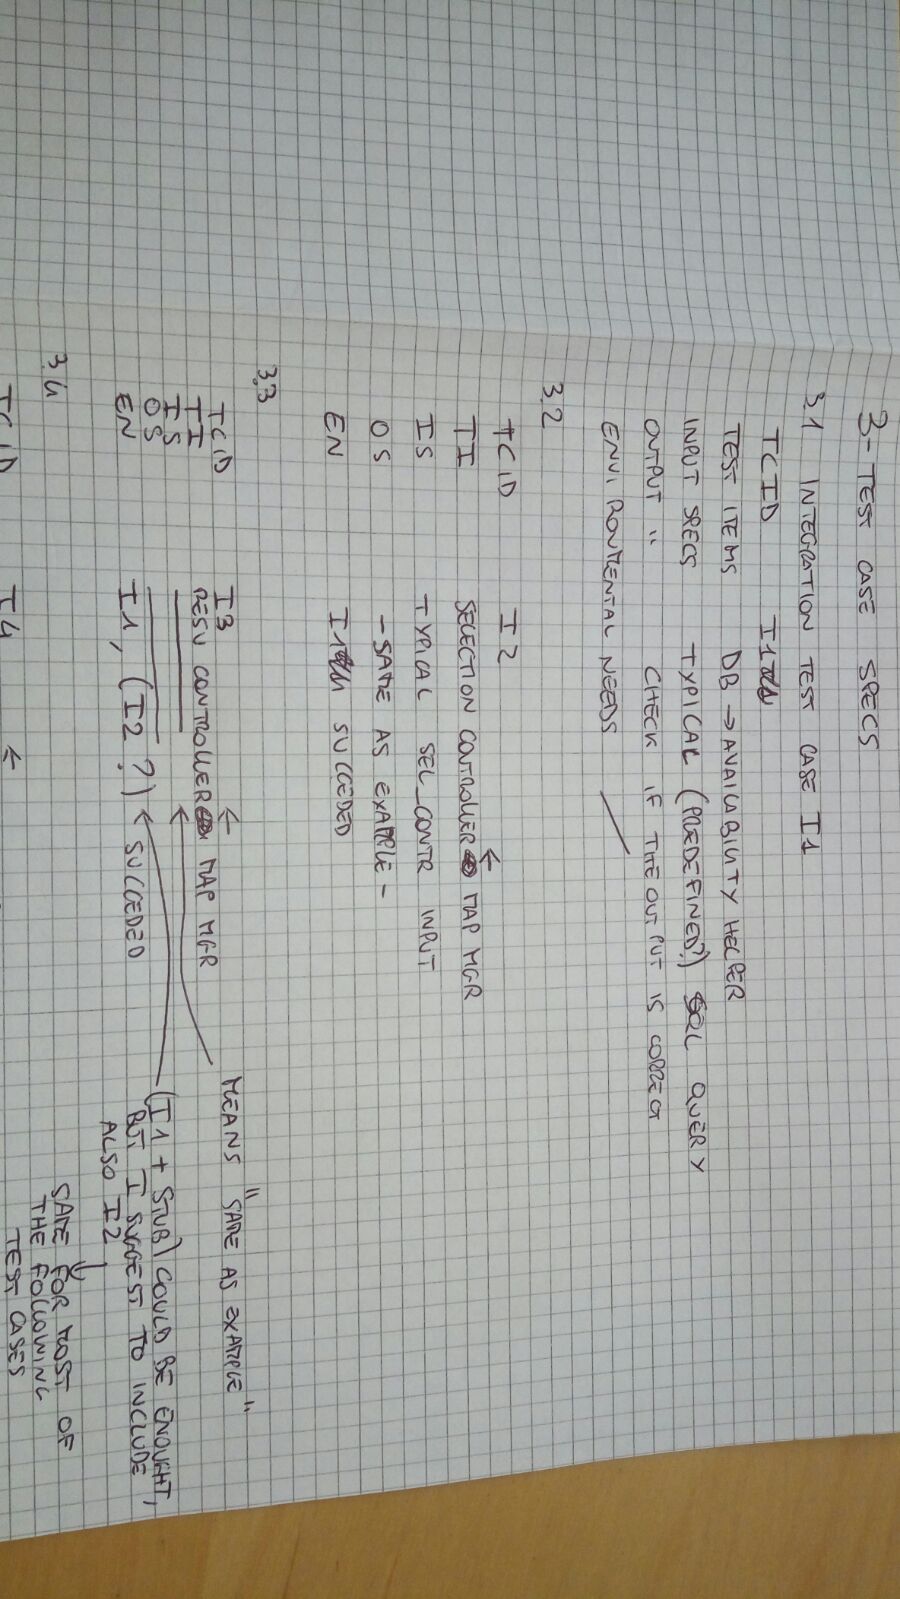 3- TEST CASE SPECS
3.1 INTEGRATION TEST CASE I1
TCID I1
TEST ITEMS DB → AVAILABILITY HELPER
INPUT SPECS TYPICAL (PREDEFINED?) SQL QUERY
OUTPUT " CHECK IF THE OUTPUT IS CORRECT
ENVIROUMENTAL NEEDS /
3.2
TCID I2
TI SELECTION CONTROLLER → MAP MGR
IS TYPICAL SEL_CONTR INPUT
OS - SAME AS EXAMPLE -
EN I1 SUCCEDED
3.3
TCID I3
TI RESV CONTROLLER → MAP MGR
IS
OS
EN I1, (I2?) SUCCEDED
MEANS "SAME AS EXAMPLE"
(I1 + STUB) COULD BE ENOUGHT,
BUT I SUGGEST TO INCLUDE
ALSO I2
↓
SAME FOR MOST OF
THE FOLLOWING
TEST CASES
3.4
TCID I4 →